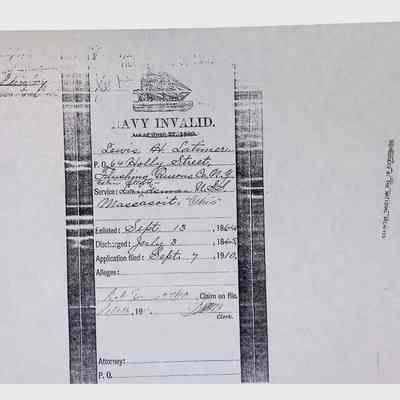 NAVY INVALID.
Lewis H. Latimer
P. O. 64 Holly Street,
Flushing Queens Co N.Y.
Service: Landsman U.S.S
Massasoit, "Ohio"
Enlisted: Sept. 13, 1864
Discharged: July 3, 1865
Application filed: Sept. 7, 1910.
Alleges:
Claim on file.
Clerk.
Attorney:
P. O.
REPRODUCED AT THE NATIONAL ARCHIVES